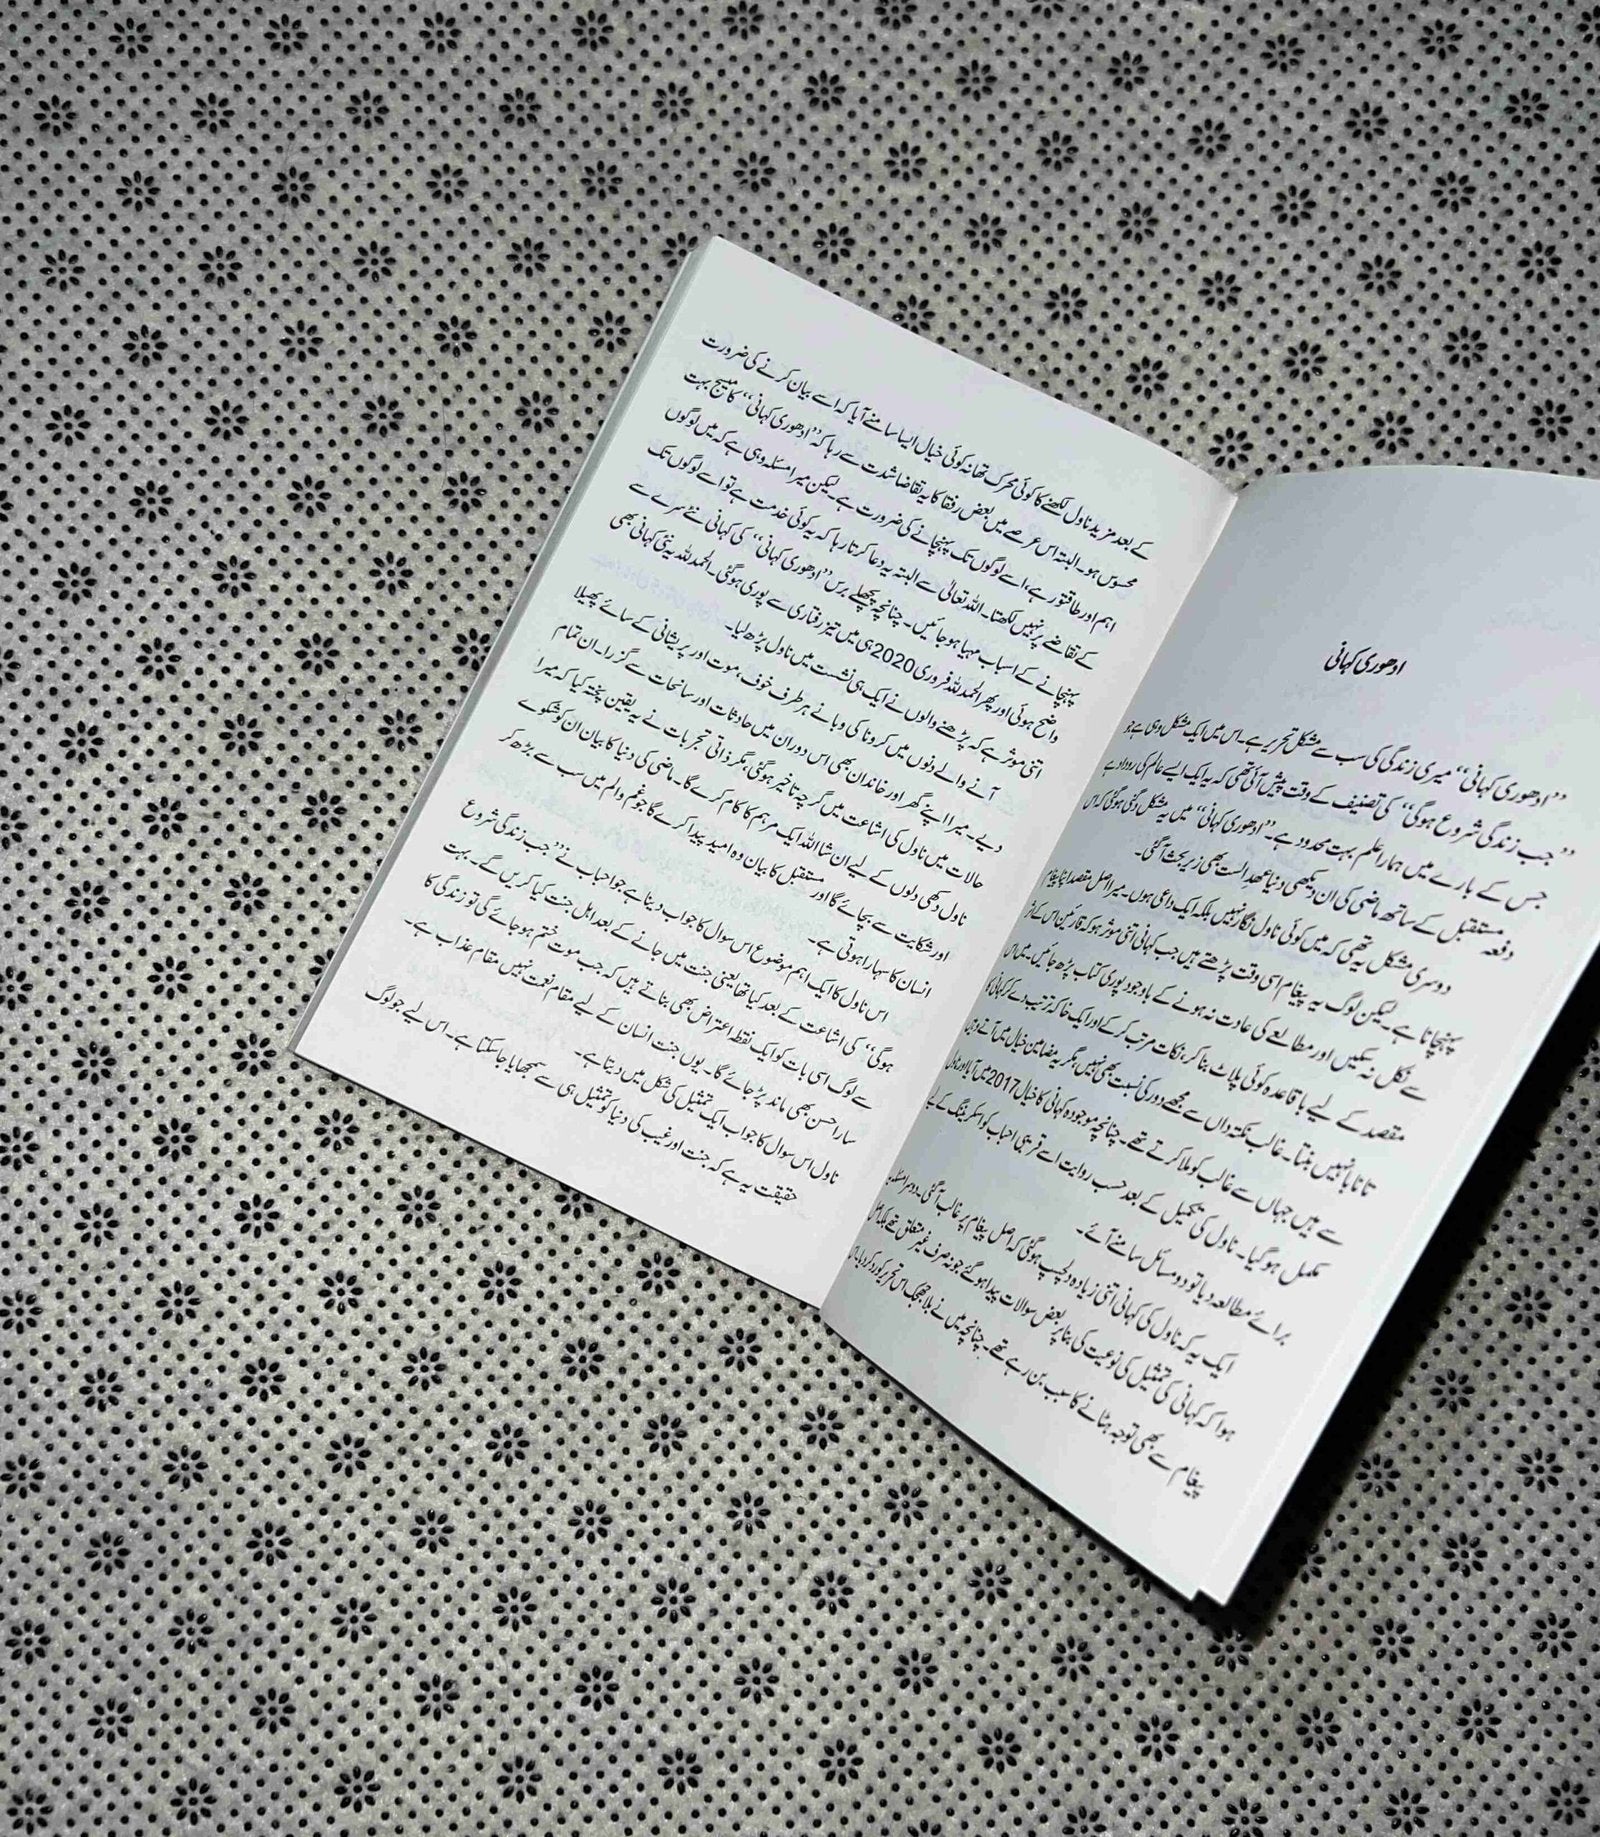 ادھوری کہانی
”ادھوری کہانی“ میری زندگی کی سب سے مشکل تحریر ہے۔ اس میں ایک مشکل وہی ہے جو
”جب زندگی شروع ہوگی“ کی تصنیف کے وقت پیش آئی تھی کہ یہ ایک ایسے عالم کی روداد ہے
جس کے بارے میں ہمارا علم بہت محدود ہے۔ ”ادھوری کہانی“ میں یہ مشکل دگنی ہوگئی کہ اس
دفعہ مستقبل کے ساتھ ماضی کی ان دیکھی دنیا عہد الست بھی زیر بحث آگئی۔
دوسری مشکل یہ تھی کہ میں کوئی ناول نگار نہیں بلکہ ایک داعی ہوں۔ میرا اصل مقصد اپنا پیغام
پہنچانا ہے۔ لیکن لوگ یہ پیغام اسی وقت پڑھتے ہیں جب کہانی اتنی موثر ہو کہ قارئین اس کے اثر
سے نکل نہ سکیں اور مطالعے کی عادت نہ ہونے کے باوجود پوری کتاب پڑھ جائیں۔ میں اس
مقصد کے لیے باقاعدہ کوئی پلاٹ بنا کر، نکات مرتب کرکے اور ایک خاکہ ترتیب دے کر کہانی کا
تانا بانا نہیں بنتا۔ غالب نکتہ داں سے مجھے دور کی نسبت بھی نہیں، مگر یہ مضامین خیال میں آتے وہیں
سے ہیں جہاں سے غالب کو ملا کرتے تھے۔ چنانچہ موجودہ کہانی کا خیال 2017 میں آیا اور ناول
مکمل ہوگیا۔ ناول کی تکمیل کے بعد حسب روایت اسے قریبی احباب کو اسکریننگ کے لیے
برائے مطالعہ دیا تو دو مسائل سامنے آئے۔
ایک یہ کہ ناول کی کہانی اتنی زیادہ دلچسپ ہوگئی کہ اصل پیغام پر غالب آگئی۔ دوسرا مسئلہ یہ
ہوا کہ کہانی کی تمثیل کی نوعیت کی بنا پر بعض سوالات پیدا ہوگئے جو نہ صرف غیر متعلق تھے بلکہ اصل
پیغام سے بھی توجہ ہٹانے کا سبب بن رہے تھے۔ چنانچہ میں نے بلا جھجک اس تحریر کو رد کردیا۔ اس
کے بعد مزید ناول لکھنے کا کوئی محرک تھا نہ کوئی خیال ایسا سامنے آیا کہ اسے بیان کرنے کی ضرورت
محسوس ہو۔ البتہ اس عرصے میں بعض رفقا کا یہ تقاضا شدت سے رہا کہ ”ادھوری کہانی“ کا میسج بہت
اہم اور طاقتور ہے، اسے لوگوں تک پہنچانے کی ضرورت ہے۔ لیکن میرا مسئلہ وہی ہے کہ میں لوگوں
کے تقاضے پر نہیں لکھتا۔ اللہ تعالیٰ سے البتہ یہ دعا کرتا رہا کہ یہ کوئی خدمت ہے تو اسے لوگوں تک
پہنچانے کے اسباب مہیا ہوجائیں۔ چنانچہ پچھلے برس ”ادھوری کہانی“ کی کہانی نئے سرے سے
واضح ہوئی اور پھر الحمد للہ فروری 2020 ہی میں تیز رفتاری سے پوری ہوگئی۔ الحمد للہ یہ نئی کہانی بھی
اتنی موثر ہے کہ پڑھنے والوں نے ایک ہی نشست میں ناول پڑھ لیا۔
آنے والے دنوں میں کرونا کی وبا نے ہر طرف خوف، موت اور پریشانی کے سائے پھیلا
دیے۔ میرا اپنے گھر اور خاندان بھی اس دوران میں حادثات اور سانحات سے گزرا۔ ان تمام
حالات میں ناول کی اشاعت میں گرچہ تاخیر ہوگئی، مگر ذاتی تجربات نے یہ یقین پختہ کیا کہ میرا
ناول دکھی دلوں کے لیے ان شا اللہ ایک مرہم کا کام کرے گا۔ ماضی کی دنیا کا بیان ان کو شکوے
اور شکایت سے بچائے گا اور مستقبل کا بیان وہ امید پیدا کرے گا جو غم والم میں سب سے بڑھ کر
انسان کا سہارا ہوتی ہے۔
اس ناول کا ایک اہم موضوع اس سوال کا جواب دینا ہے جو احباب نے ”جب زندگی شروع
ہوگی“ کی اشاعت کے بعد کیا تھا یعنی جنت میں جانے کے بعد اہل جنت کیا کریں گے۔ بہت
سے لوگ اسی بات کو ایک نقطہ اعتراض بھی بناتے ہیں کہ جب موت ختم ہوجائے گی تو زندگی کا
سارا حسن بھی ماند پڑ جائے گا۔ یوں جنت انسان کے لیے مقام نعمت نہیں مقام عذاب ہے۔
ناول اس سوال کا جواب ایک تمثیل کی شکل میں دیتا ہے۔
حقیقت یہ ہے کہ جنت اور غیب کی دنیا کو تمثیل ہی سے سمجھایا جاسکتا ہے۔ اس لیے جو لوگ